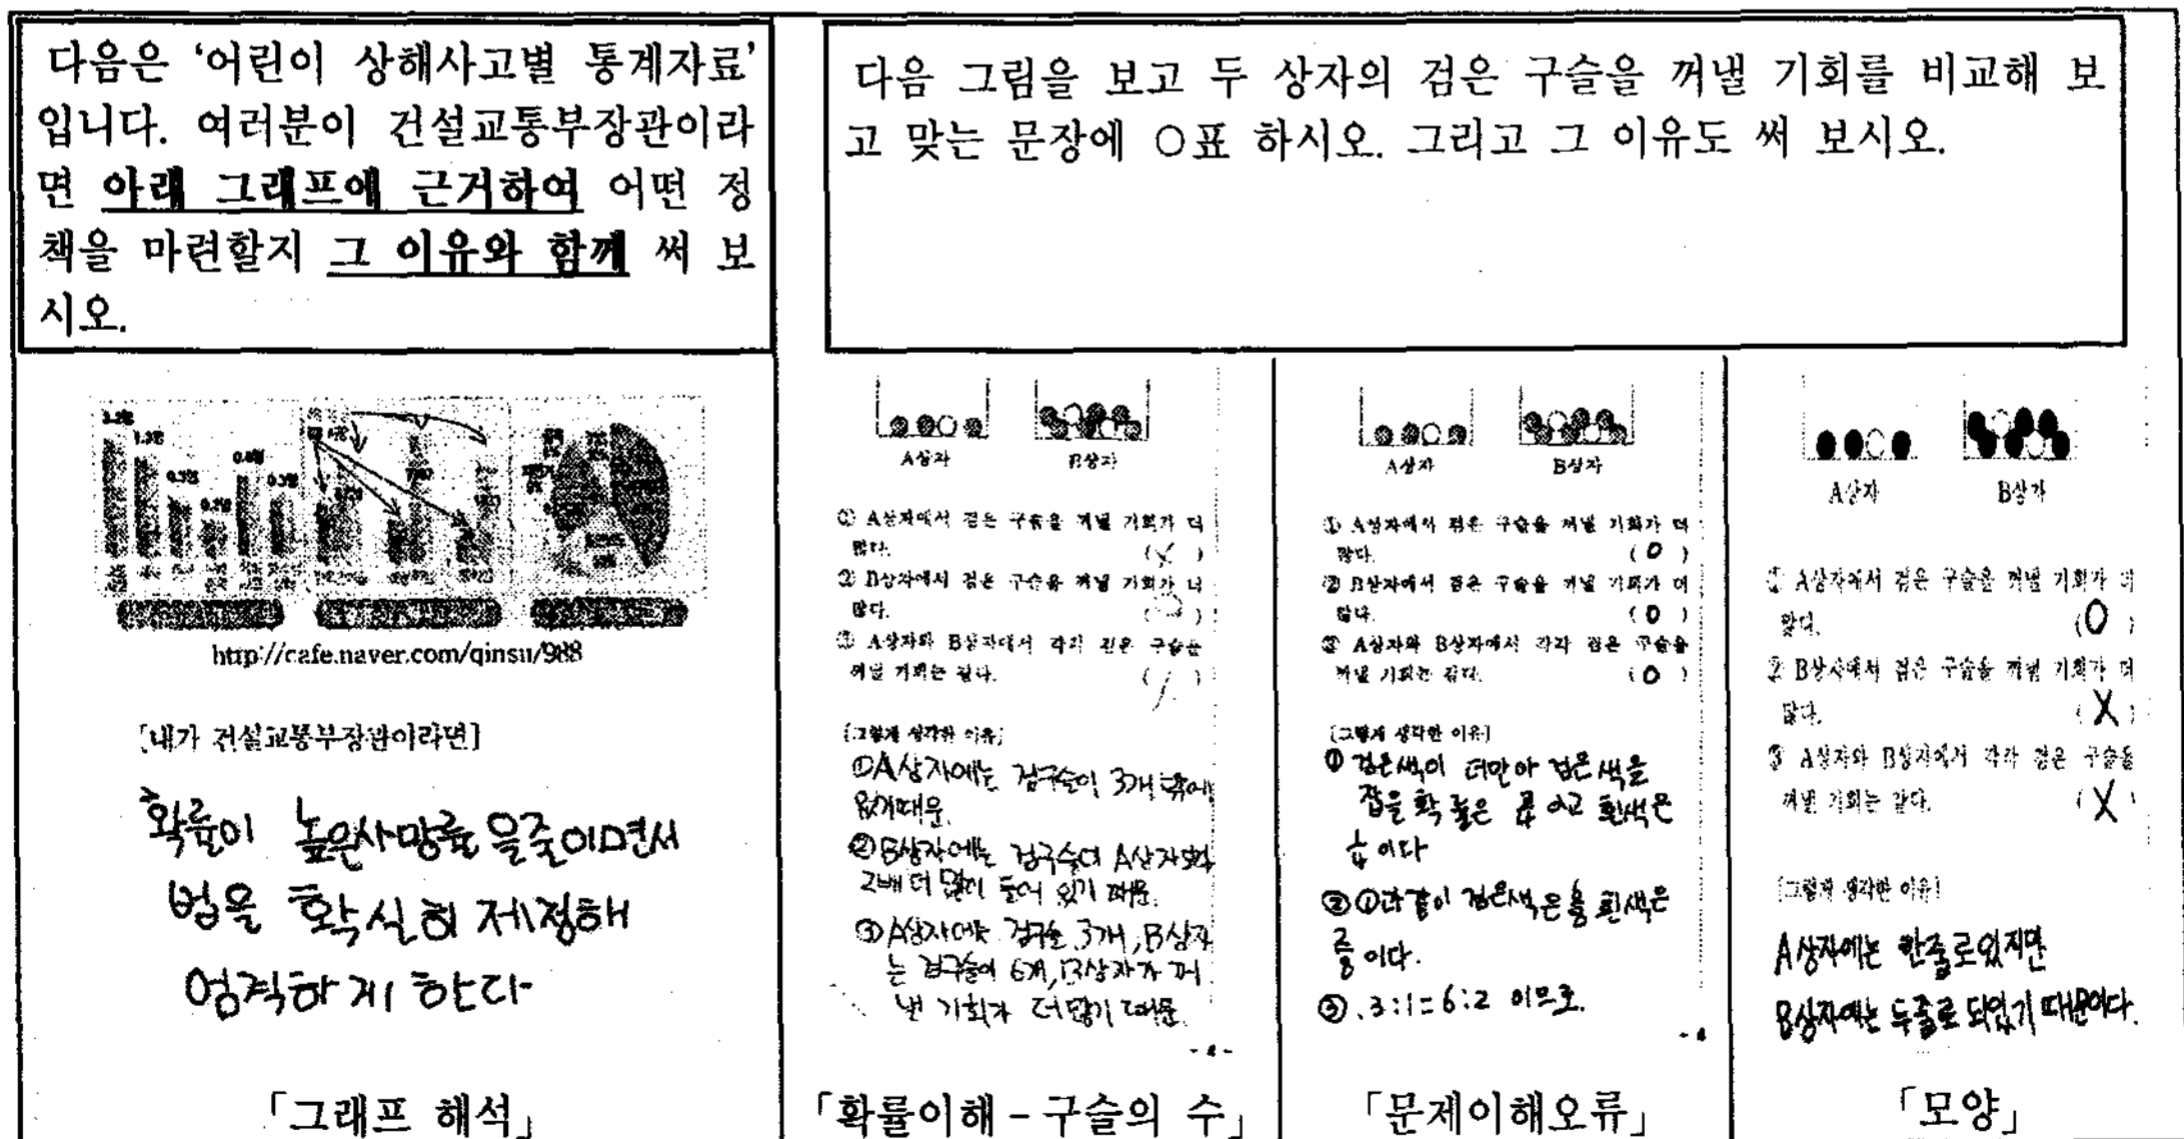 다음은 '어린이 상해사고별 통계자료'
입니다. 여러분이 건설교통부장관이라
면 아래 그래프에 근거하여 어떤 정
책을 마련할지 그 이유와 함께 써 보
시오.
다음 그림을 보고 두 상자의 검은 구슬을 꺼낼 기회를 비교해 보
고 맞는 문장에 ○표 하시오. 그리고 그 이유도 써 보시오.
http://cafe.naver.com/qinsu/988
[내가 건설교통부장관이라면]
확률이 높은사망률을줄이면서
법을 확실히 제정해
엄격하게 한다
「그래프 해석」
A상자 B상자
① A상자에서 검은 구슬을 꺼낼 기회가 더
많다. (X)
② B상자에서 검은 구슬을 꺼낼 기회가 더
많다. ( )
③ A상자와 B상자에서 각각 검은 구슬을
꺼낼 기회는 같다. (/)
[그렇게 생각한 이유]
①A상자에는 검구슬이 3개 밖에
없기때문.
②B상자에는 검구슬이 A상자보다
2배 더 많이 들어 있기 때문.
③A상자에는 검구슬 3개, B상자
는 검구슬이 6개, B상자가 꺼
낼 기회가 더많기 때문.
- 4 -
「확률이해 - 구슬의 수」
A상자 B상자
① A상자에서 검은 구슬을 꺼낼 기회가 더
많다. (O)
② B상자에서 검은 구슬을 꺼낼 기회가 더
많다. (O)
③ A상자와 B상자에서 각각 검은 구슬을
꺼낼 기회는 같다. (O)
[그렇게 생각한 이유]
①검은색이 더만아 검은색을
잡을 확률은 이고 흰색은
¼ 이다
② ①과같이 검은색은 흰색은
2/8 이다.
③ .3:1=6:2 이므로.
- 4
「문제이해오류」
A상자 B상자
① A상자에서 검은 구슬을 꺼낼 기회가 더
많다. (O)
② B상자에서 검은 구슬을 꺼낼 기회가 더
많다. (X)
③ A상자와 B상자에서 각각 검은 구슬을
꺼낼 기회는 같다. (X)
[그렇게 생각한 이유]
A상자에는 한줄로있지만
B상자에는 두줄로 되있기 때문이다.
「모양」